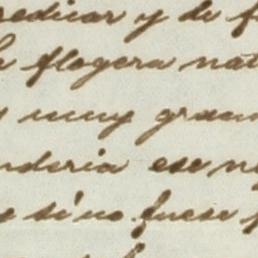 redicar y de f
la flogera nat
y muy gran
nderia ese n
e sino fuese p